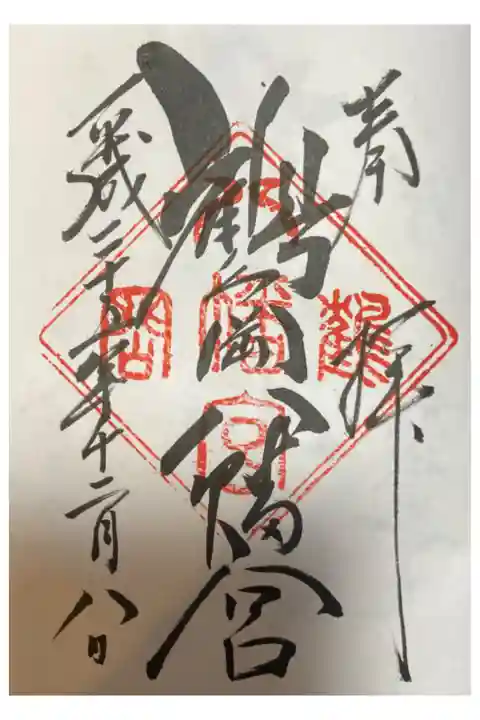 奉拝
鶴岡八幡宮
平成二十五年十二月八日
鶴
岡
八
幡
宮